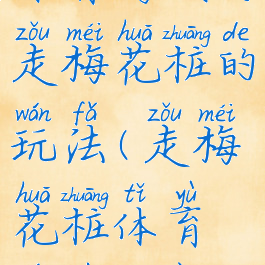 zǒu méi huā zhuāng de
走梅花桩的
wán fǎ zǒu méi
玩法(走梅
huā zhuāng tǐ yù
花桩体育